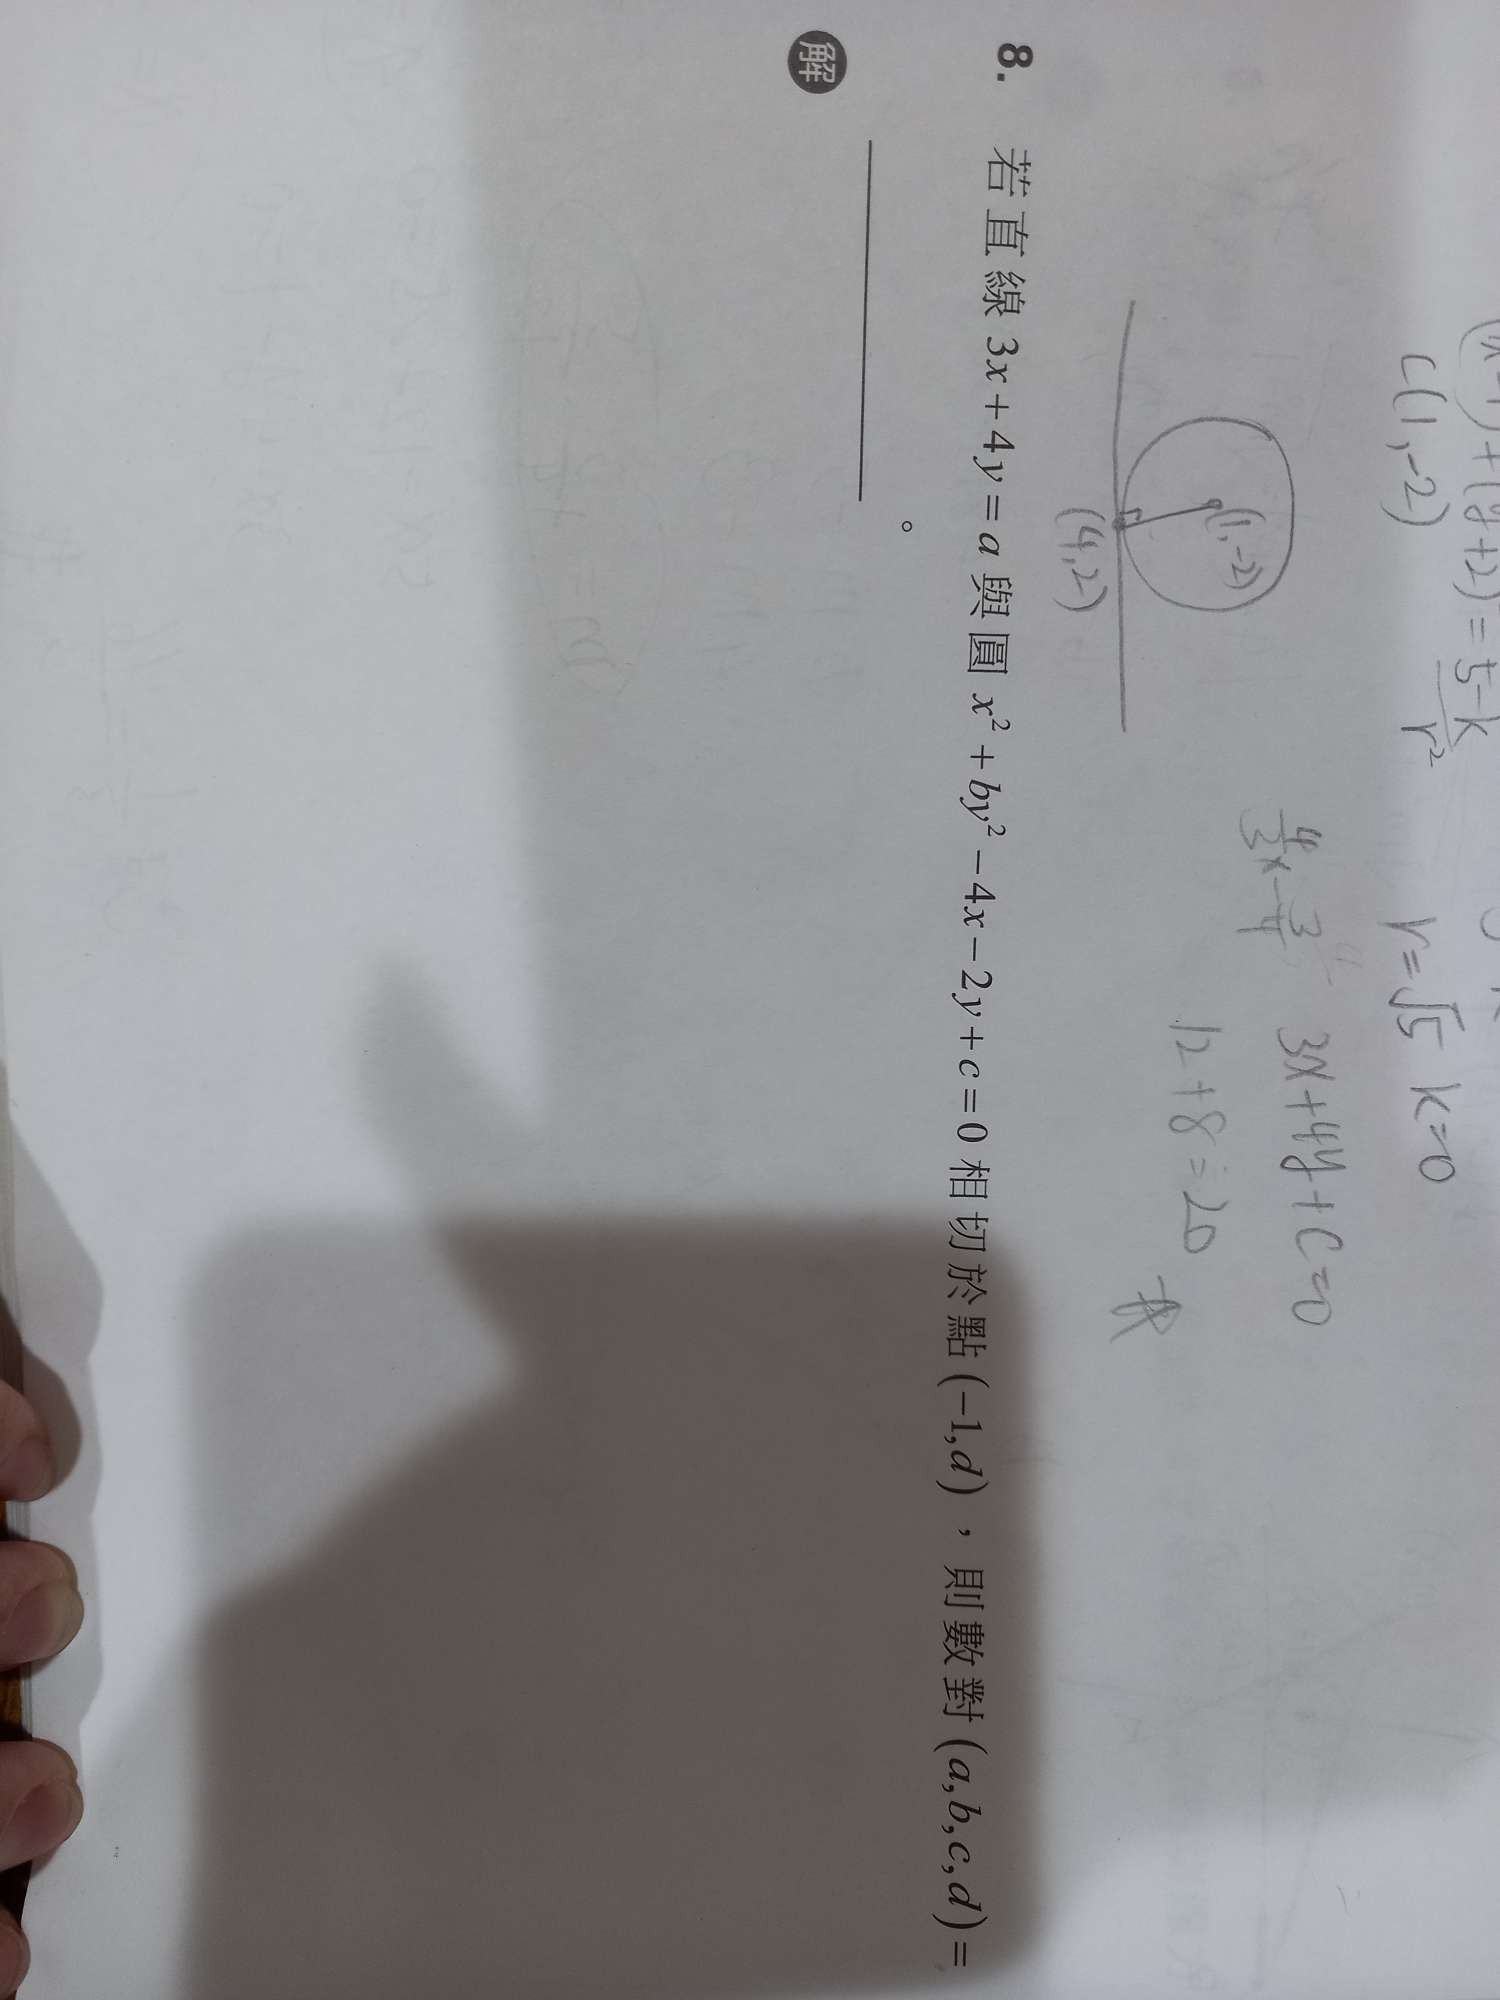 (x-1)²+(y+2)²=5-k
r²
C(1,-2)
r=√5 k=0
(1,-2)
(4,2)
3x+4y+C=0
12+8=20
8. 若直線 3x+4y=a 與圓 x²+by²-4x-2y+c=0 相切於點 (-1,d),則數對 (a,b,c,d)=
。
解